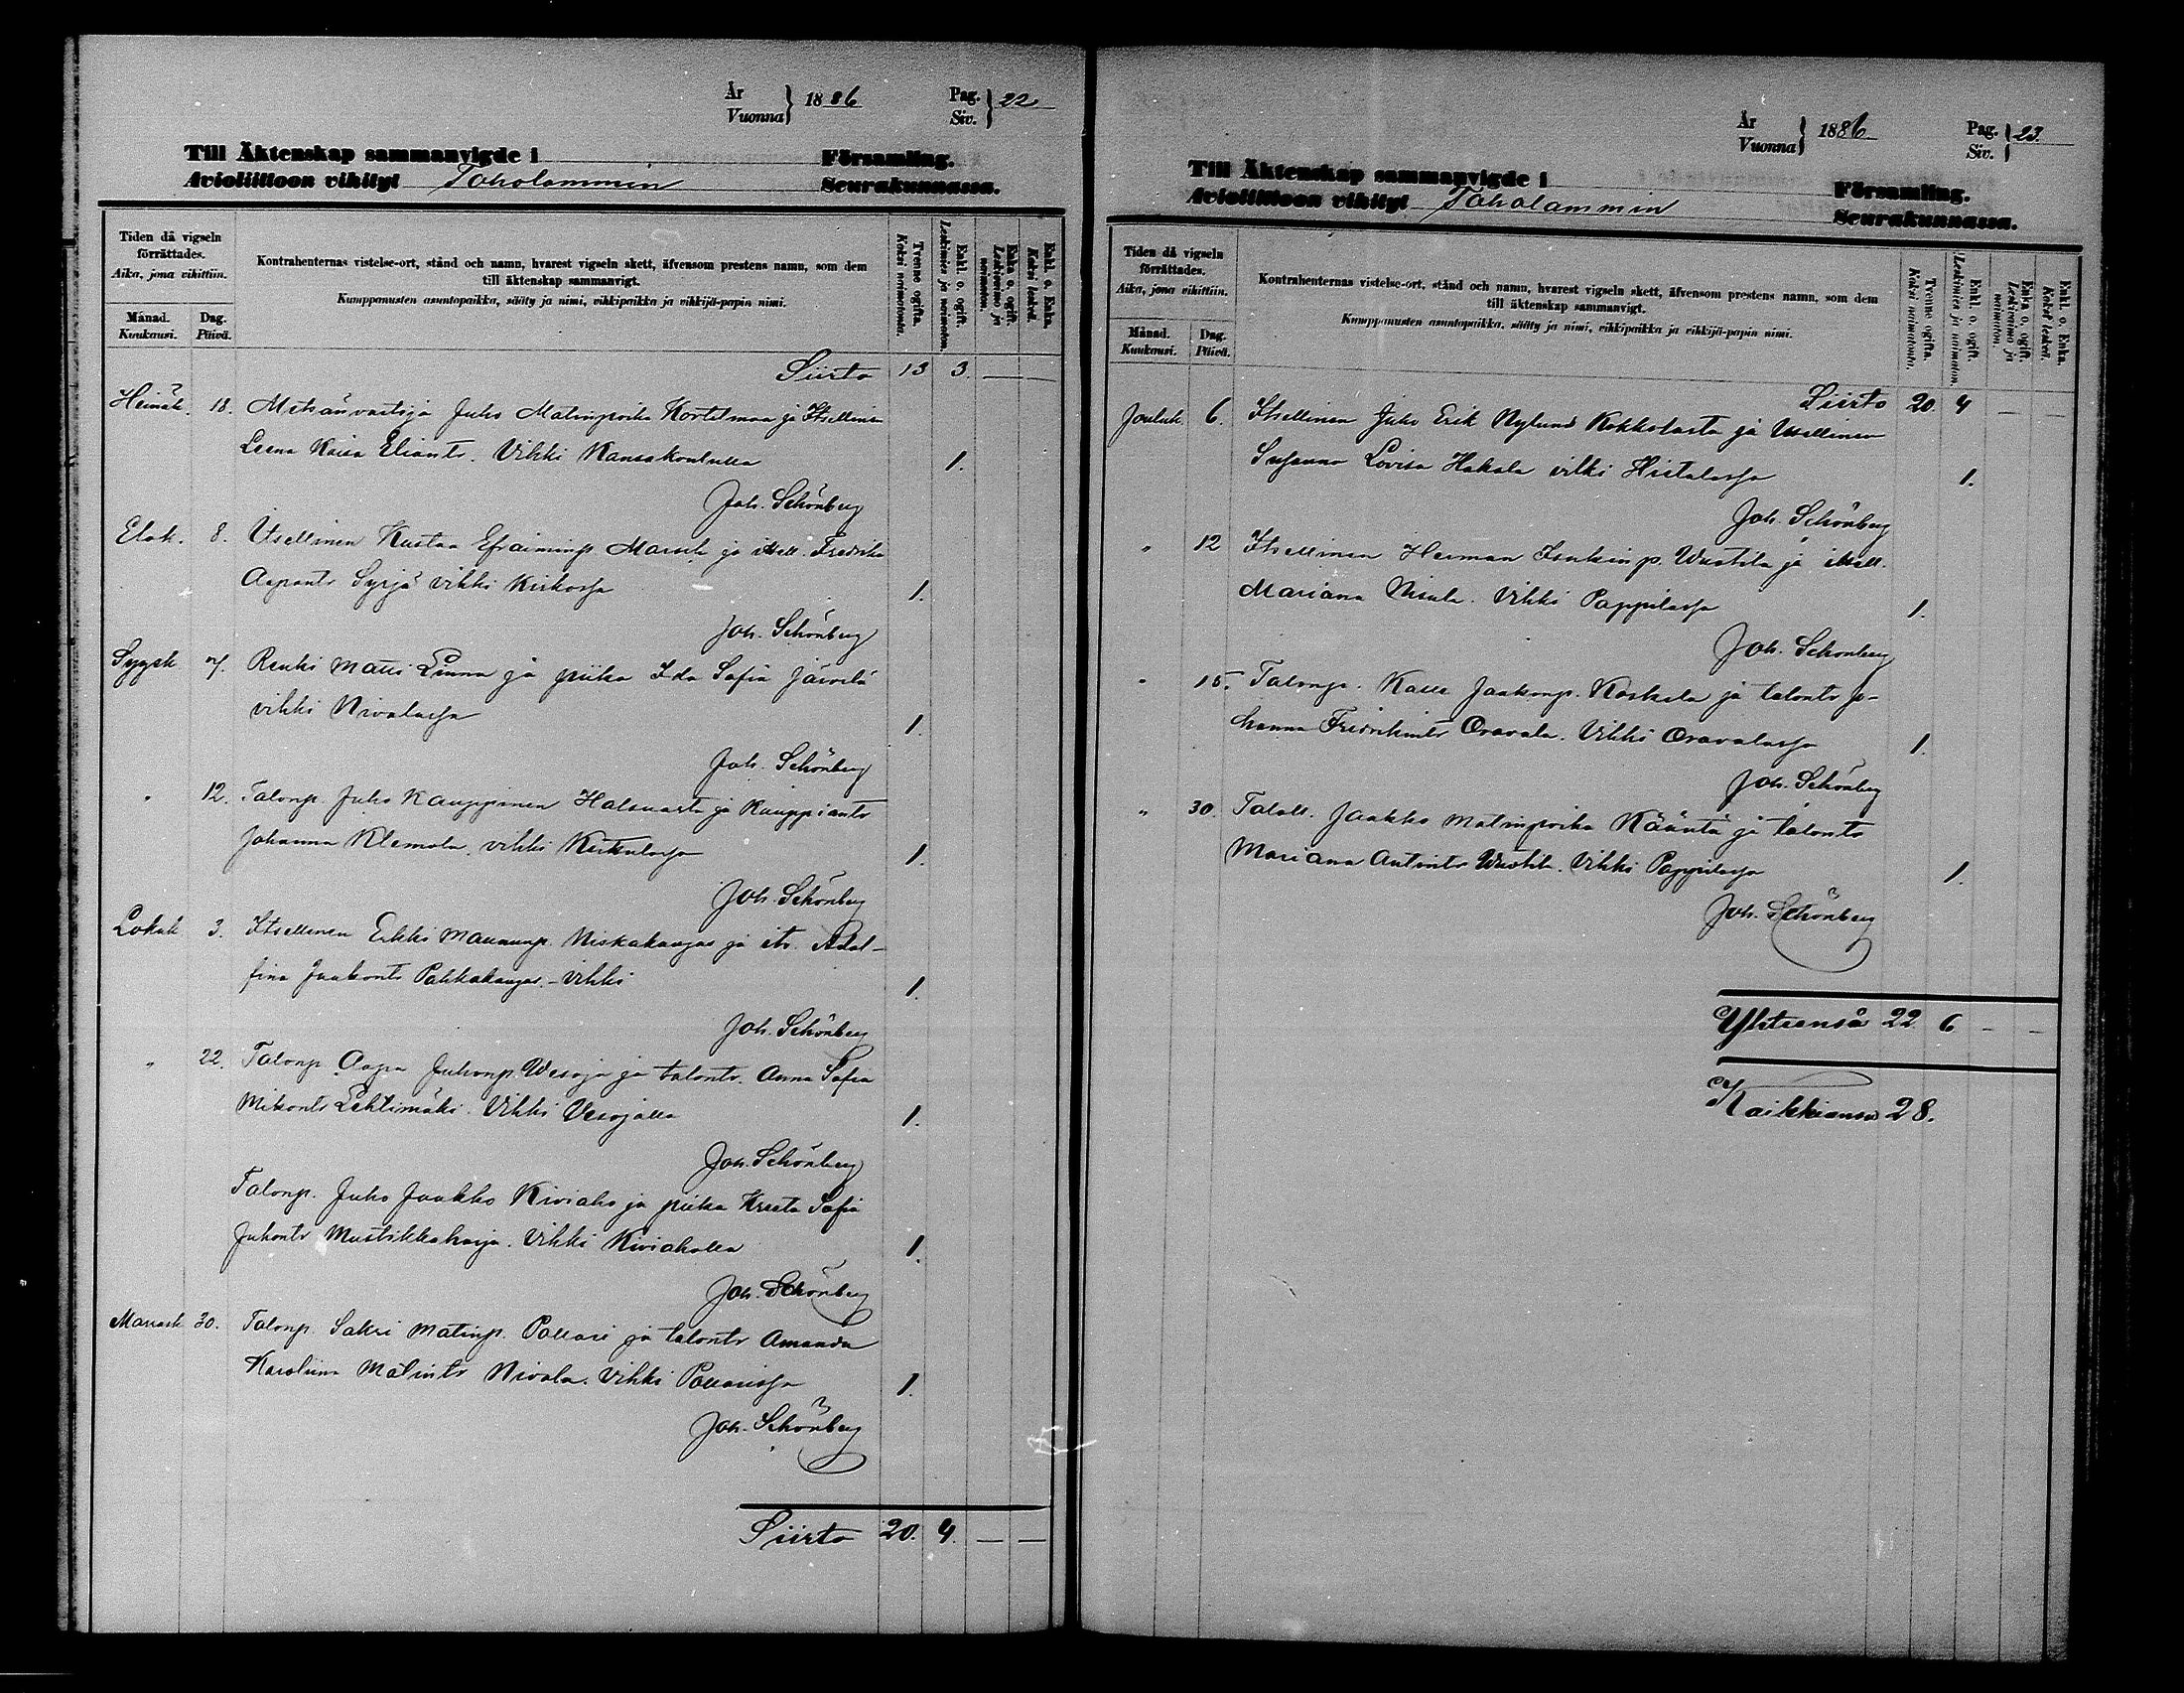 År
Vuonna } 1886 Pag.
Siv. } 22
Till Äktenskap sammanvigde i Församling.
Avioliittoon vihityt Toholammin Seurakunnassa.
Tiden då vigseln
förrättades.
Aika, jona vihittiin.
Månad.
Kuukausi.
Dag.
Päivä.
Kontrahenternas vistelse-ort, stånd och namn, hvarest vigseln skett, äfvensom prestens namn, som dem
till äktenskap sammanvigt.
Kumppanusten asuntopaikka, sääty ja nimi, vihkipaikka ja vihkijä-papin nimi.
Tvenne ogifta.
Kaksi naimatonta.
Enkl. o. ogift.
Leskimies ja naimaton.
Enka o. ogift.
Leskivaimo ja
naimaton.
Enkl. o. Enka.
Kaksi leskeä.
Siirto 13 3. — —
Heinäk. 18. Metsänvartija Juho Matinpoika Kortelmaa ja Itsellinen
Leena Kaisa Eliantr. Vihki Kansakoululla 1.
Joh. Schönberg
Elok. 8. Itsellinen Kustaa Efraiminp. Marsch ja itsell. Fredrika
Aapontr Syrjä vihki Kirkossa 1.
Joh. Schönberg
Syysk 7. Renki Matti Linna ja piika Ida Sofia Järvelä
vihki Nivalassa 1.
Joh. Schönberg
" 12. Talonp. Juho Kauppinen Halsuasta ja Kauppiantr
Johanna Klemola, vihki 1.
Joh. Schönberg
Lokak 3. Itsellinen Erkki Maununp. Niskakangas ja its. Adol-
fina Jaakontr Pahkakangas. – Vihki 1.
Joh. Schönberg
" 22. Talonp Aapo Juhonp. Wesoja ja talontr. Anna Sofia
Mikontr Lehtimäki. Vihki Vesojalla 1.
Joh. Schönberg
Talonp. Juho Jaakko Kiviaho ja piika Kreeta Sofia
Juhontr Mustikkaharju. Vihki Kiviaholla 1.
Joh. Schönberg
Marrask 30. Talonp. Sakri Matinp. Pollari ja talontr Amanda
Karoliina Matintr Nivala. Vihki Pollarissa 1.
Joh. Schönberg
Siirto 20. 4. — —
År
Vuonna } 1886 Pag.
Siv. } 23.
Till Äktenskap sammanvigde i Församling.
Avioliittoon vihityt Toholammin Seurakunnassa.
Tiden då vigseln
förrättades.
Aika, jona vihittiin.
Månad.
Kuukausi.
Dag.
Päivä.
Kontrahenternas vistelse-ort, stånd och namn, hvarest vigseln skett, äfvensom prestens namn, som dem
till äktenskap sammanvigt.
Kumppanusten asuntopaikka, sääty ja nimi, vihkipaikka ja vihkijä-papin nimi.
Tvenne ogifta.
Kaksi naimatonta.
Enkl. o. ogift.
Leskimies ja naimaton.
Enka o. ogift.
Leskivaimo ja
naimaton
Enkl. o. Enka.
Kaksi leskeä.
Siirto 20. 4 — —
Jouluk. 6. Itsellinen Juho Erik Nylund Kokkolasta ja Itsellinen
Susanna Lovisa Hakala vihki Hietalassa 1.
Joh. Schönberg
" 12 Itsellinen Herman Isakinp. Wuotila ja itsell.
Mariana Nisula. Vihki Pappilassa 1.
Joh. Schönberg
" 15. Talonp. Kalle Jaakonp. Koskela ja talontr Jo-
hanna Fredrikintr Oravala. Vihki Oravalassa 1.
Joh. Schönberg
" 30. Taloll. Jaakko Matinpoika Kääntä ja talontr
Mariana Antintr Wuotila. Vihki Pappilassa 1.
Joh. Schönberg
Yhteensä 22 6 — —
Kaikkiansa 28.